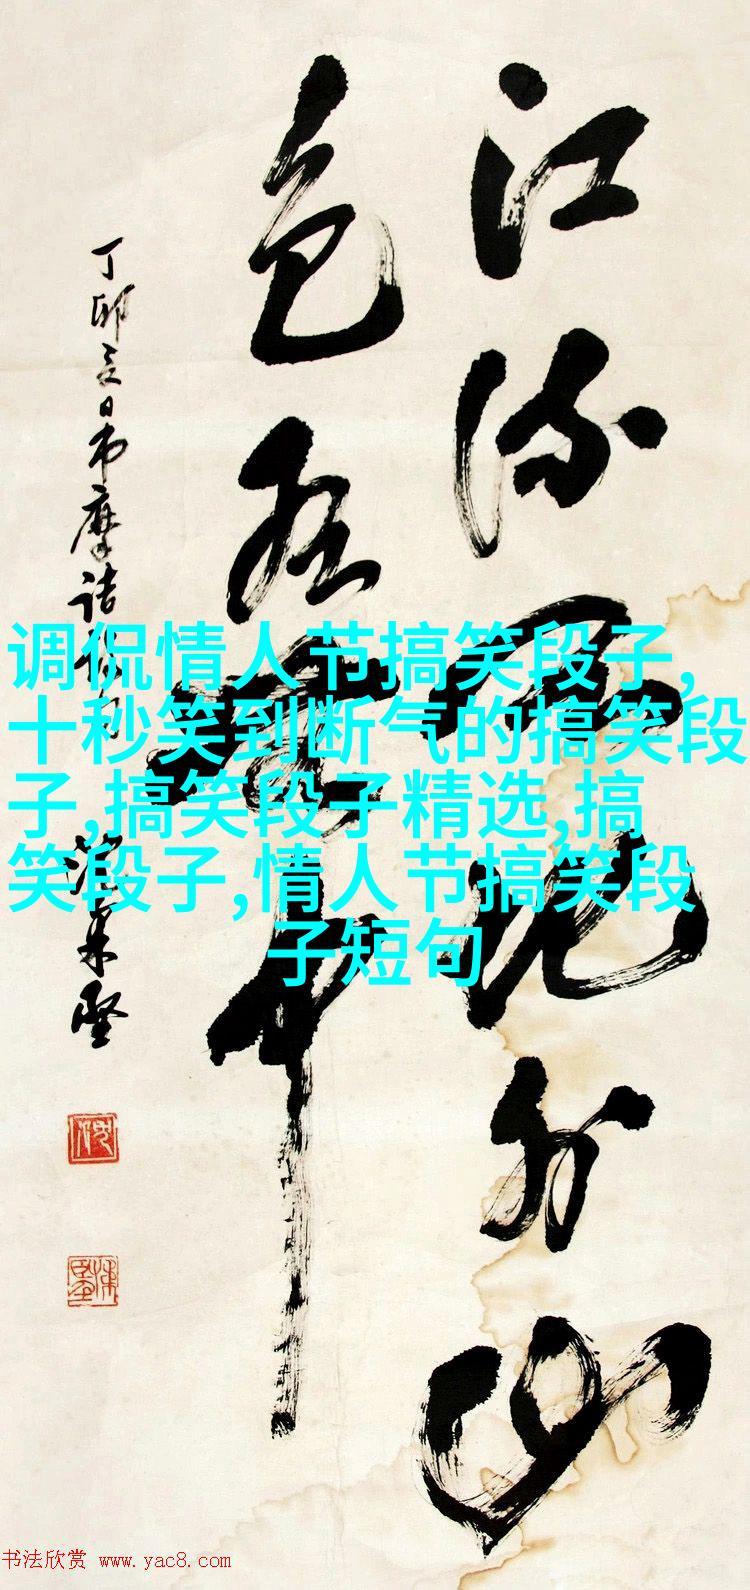 江流天地外山
色有无中
丁卯夏日书摩诘诗句
调侃情人节搞笑段子,
十秒笑到断气的搞笑段
子,搞笑段子精选,搞
笑段子,情人节搞笑段
子短句
书法欣赏 www.yac8.com